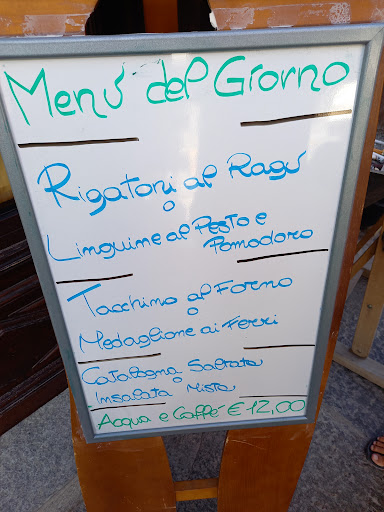 Menú del Giorno
Rigatoni al Ragú
o
Linguine al Pesto e
Pomodoro
Tacchino al Forno
o
Medaglione ai Ferri
Catalogna Saltata
o
Insalata Mista
Acqua e Caffé € 12,00